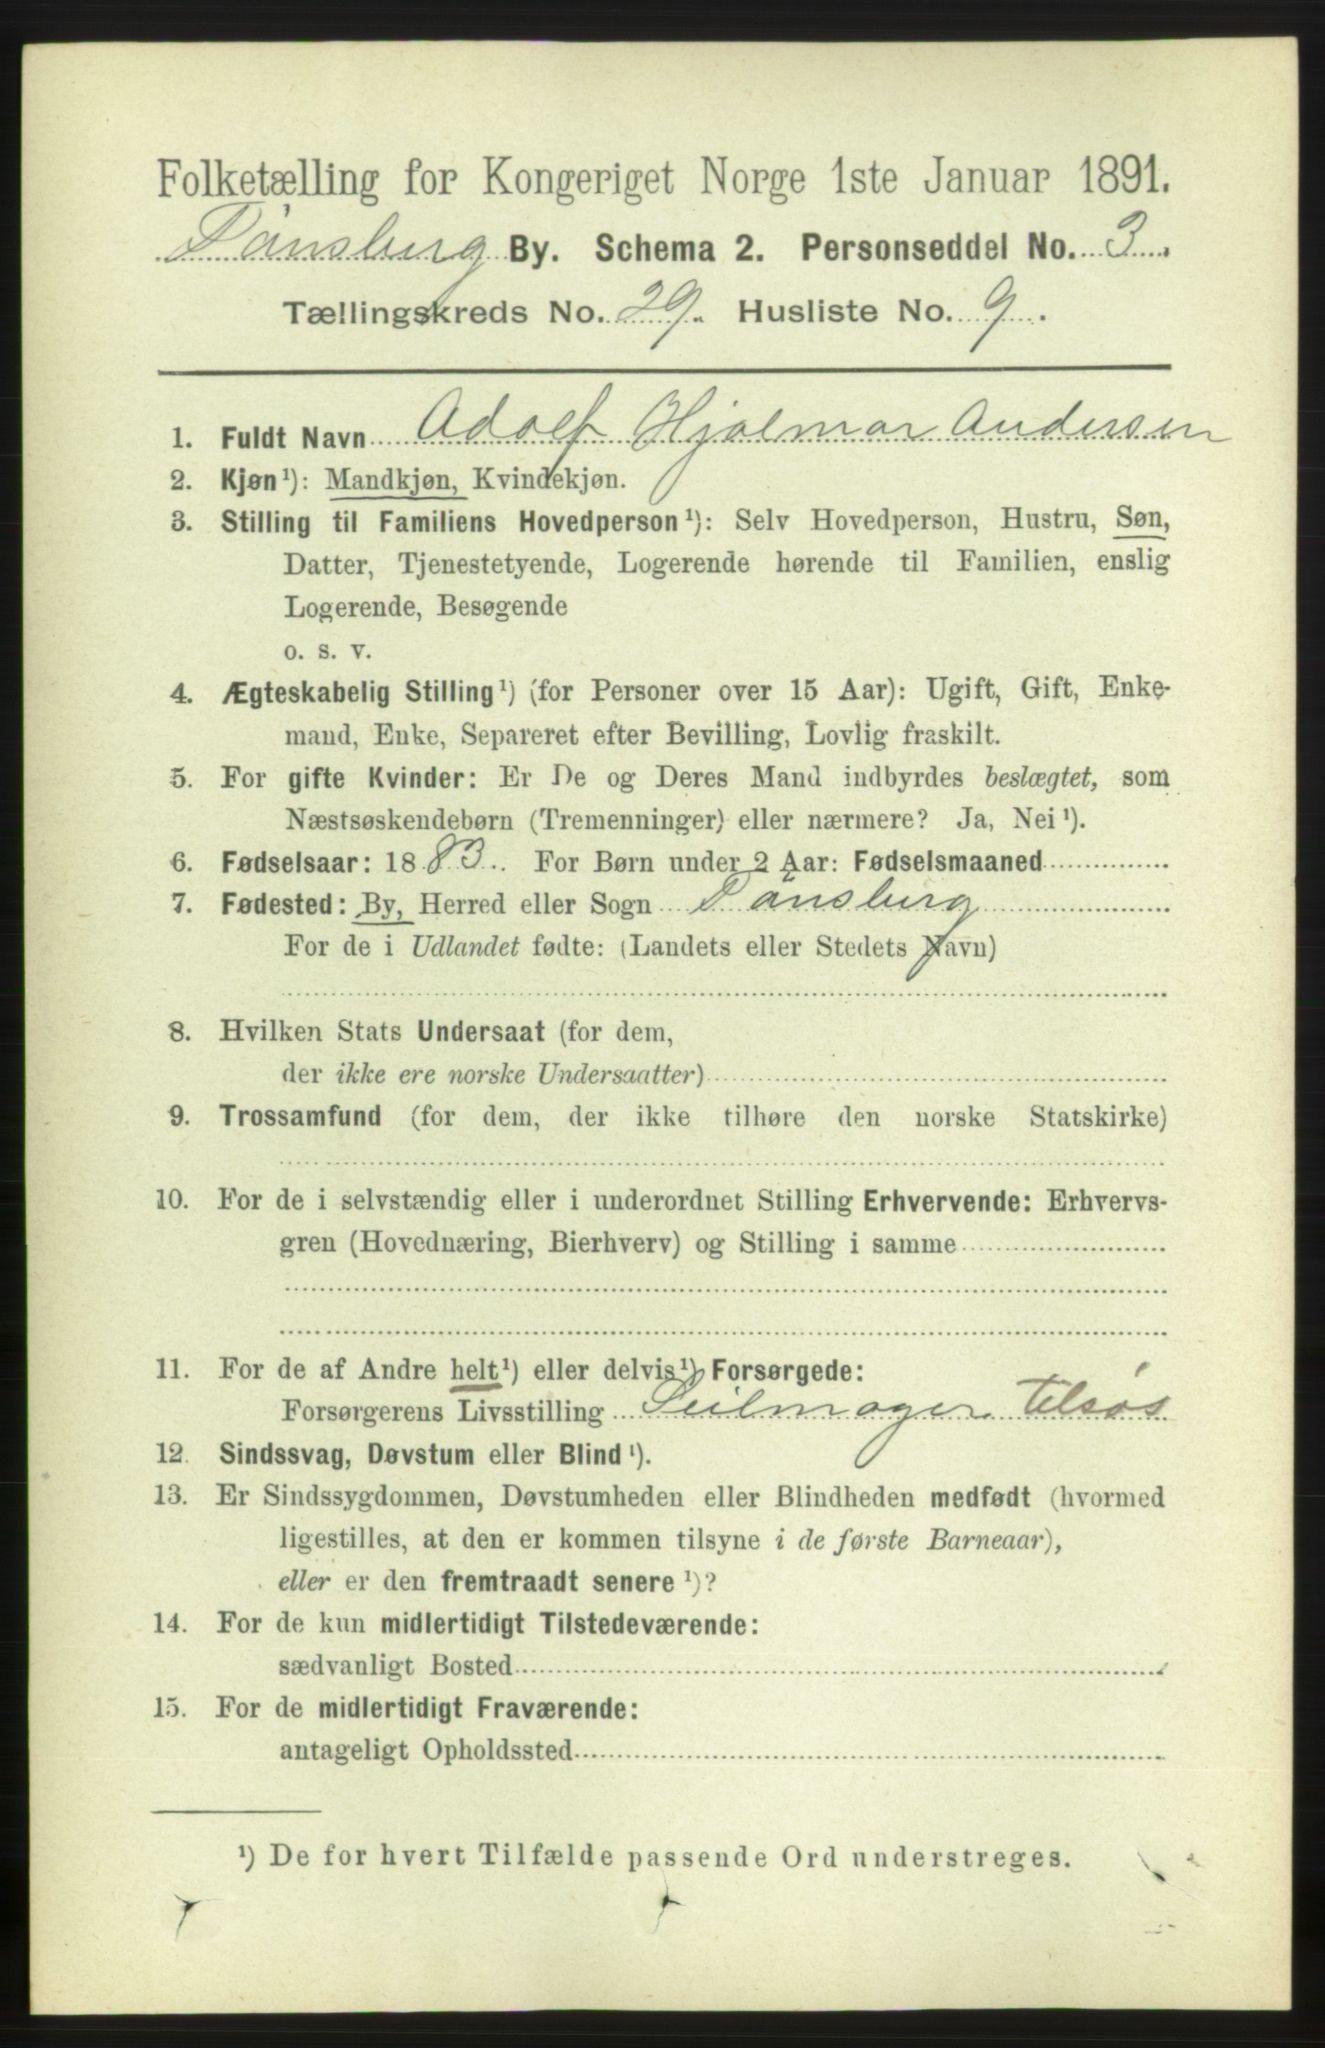 Folketælling for Kongeriget Norge 1ste Januar 1891.
Tønsberg By. Schema 2. Personseddel No. 3.
Tællingskreds No. 29. Husliste No. 9.
1. Fuldt Navn Adolf Hjalmar Andersen
2. Kjøn¹): Mandkjøn, Kvindekjøn.
3. Stilling til Familiens Hovedperson¹): Selv Hovedperson, Hustru, Søn,
Datter, Tjenestetyende, Logerende hørende til Familien, enslig
Logerende, Besøgende
o. s. v.
4. Ægteskabelig Stilling¹) (for Personer over 15 Aar): Ugift, Gift, Enke-
mand, Enke, Separeret efter Bevilling, Lovlig fraskilt.
5. For gifte Kvinder: Er De og Deres Mand indbyrdes beslægtet, som
Næstsøskendebørn (Tremenninger) eller nærmere? Ja, Nei¹).
6. Fødselsaar: 1883. For Børn under 2 Aar: Fødselsmaaned
7. Fødested: By, Herred eller Sogn Tønsberg
For de i Udlandet fødte: (Landets eller Stedets Navn)
8. Hvilken Stats Undersaat (for dem,
der ikke ere norske Undersaatter)
9. Trossamfund (for dem, der ikke tilhøre den norske Statskirke)
10. For de i selvstændig eller i underordnet Stilling Erhvervende: Erhvervs-
gren (Hovednæring, Bierhverv) og Stilling i samme
11. For de af Andre helt¹) eller delvis¹) Forsørgede:
Forsørgerens Livsstilling Seilmager tilsøs
12. Sindssvag, Døvstum eller Blind¹).
13. Er Sindssygdommen, Døvstumheden eller Blindheden medfødt (hvormed
ligestilles, at den er kommen tilsyne i de første Barneaar),
eller er den fremtraadt senere¹)?
14. For de kun midlertidigt Tilstedeværende:
sædvanligt Bosted
15. For de midlertidigt Fraværende:
antageligt Opholdssted
¹) De for hvert Tilfælde passende Ord understreges.